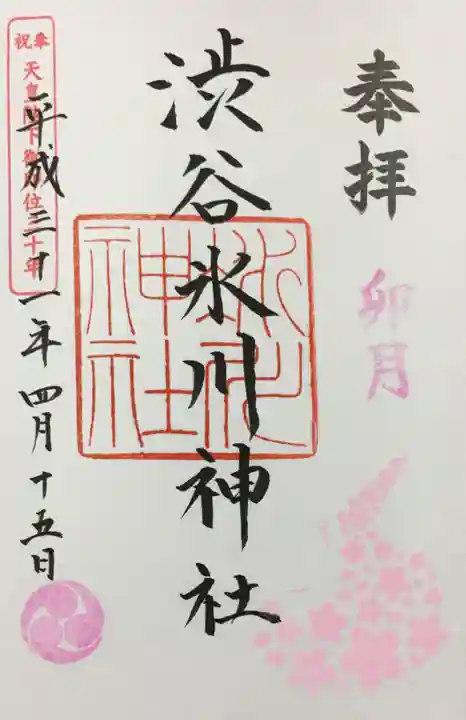 奉拝
卯月
渋谷氷川神社
氷川
神社
奉祝
天皇陛下御即位三十年
平成三十一年四月十五日